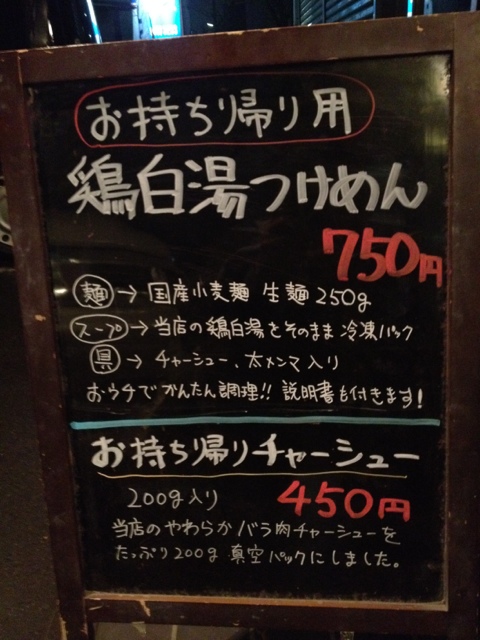 お持ち帰り用
鶏白湯つけめん
750円
麺→国産小麦麺 生麺250g
スープ→当店の鶏白湯をそのまま冷凍パック
具→チャーシュー、太メンマ入り
おウチでかんたん調理!!説明書も付きます!
お持ち帰りチャーシュー
200g入り 450円
当店のやわらかバラ肉チャーシューを
たっぷり200g真空パックにしました。